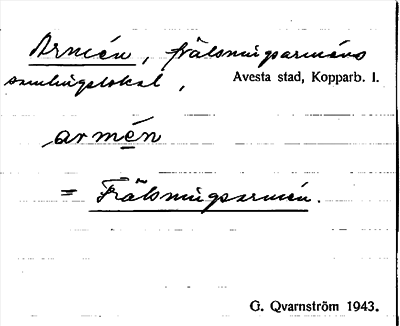 Armén, frälsningsarméns
samlingslokal, Avesta stad, Kopparb. l.
armén
= Frälsningsarmén.
G. Qvarnström 1943.